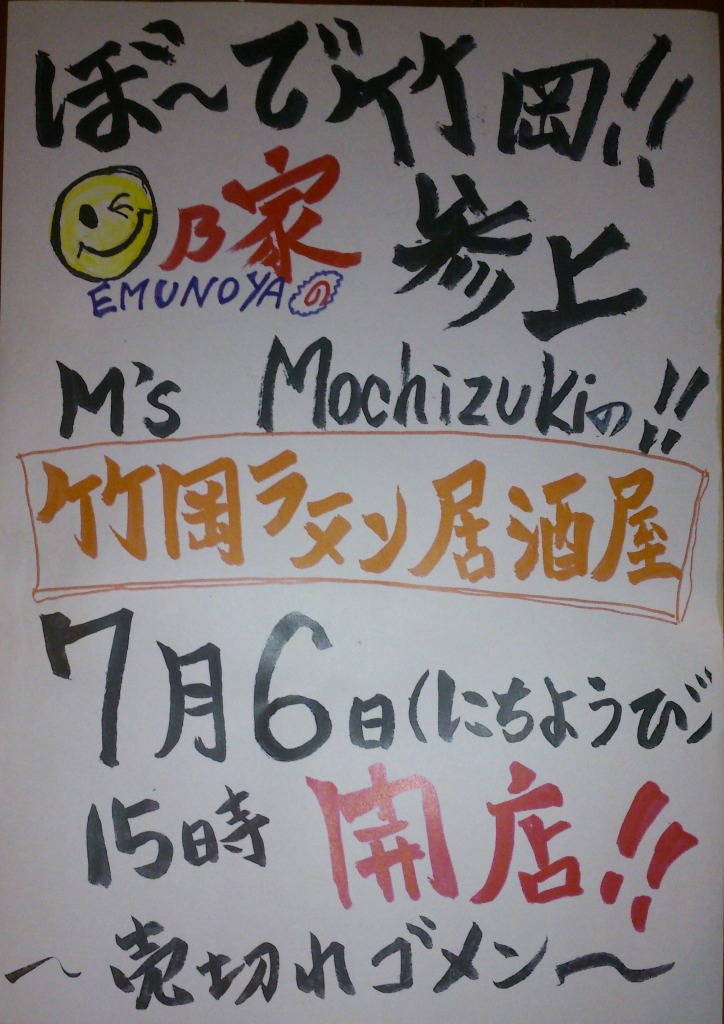 ぼ〜で竹岡!!
乃家 参上
EMUNOYA の
M's Mochizukiの!!
竹岡ラーメン居酒屋
7月6日(にちようび)
15時 開店!!
〜売切れゴメン〜